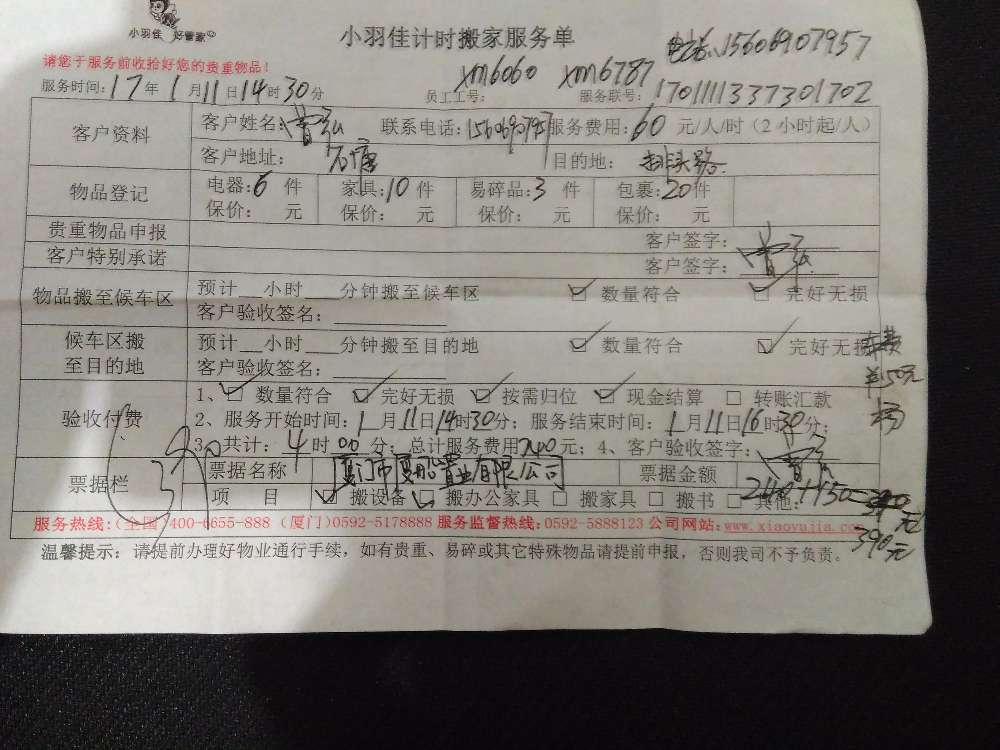 小羽佳 好管家
小羽佳计时搬家服务单
电话:15606907957
请您于服务前收拾好您的贵重物品!
xm6060 xm6787
服务时间:17年1月11日14时30分 员工工号: 服务联号:1701111337301702
客户资料 客户姓名: 联系电话:15606907957 服务费用:60 元/人/时(2小时起/人)
客户地址: 石塘 目的地:
物品登记 电器:6 件 家具:10 件 易碎品:3 件 包裹:20件
保价: 元 保价: 元 保价: 元 保价: 元
贵重物品申报 客户签字:
客户特别承诺 客户签字:
物品搬至候车区 预计__小时___分钟搬至候车区 数量符合 完好无损
客户验收签名:
候车区搬至目的地 预计__小时___分钟搬至目的地 数量符合 完好无损
客户验收签名:
车费
¥150元
验收付费 1、 数量符合 完好无损 按需归位 现金结算 转账汇款
2、服务开始时间:1月11日14时30分;服务结束时间:1月11日16时30分;
3、共计:4时00分;总计服务费用240元;4、客户验收签字:
票据栏 票据名称 厦门市厦船置业有限公司 票据金额 240+150
项 目 搬设备 搬办公家具 搬家具 搬书 其他:
390元
服务热线:(全国)400-6655-888 (厦门)0592-5178888 服务监督热线:0592-5888123 公司网站:www.xiaoyujia.co
温馨提示:请提前办理好物业通行手续,如有贵重、易碎或其它特殊物品请提前申报,否则我司不予负责。